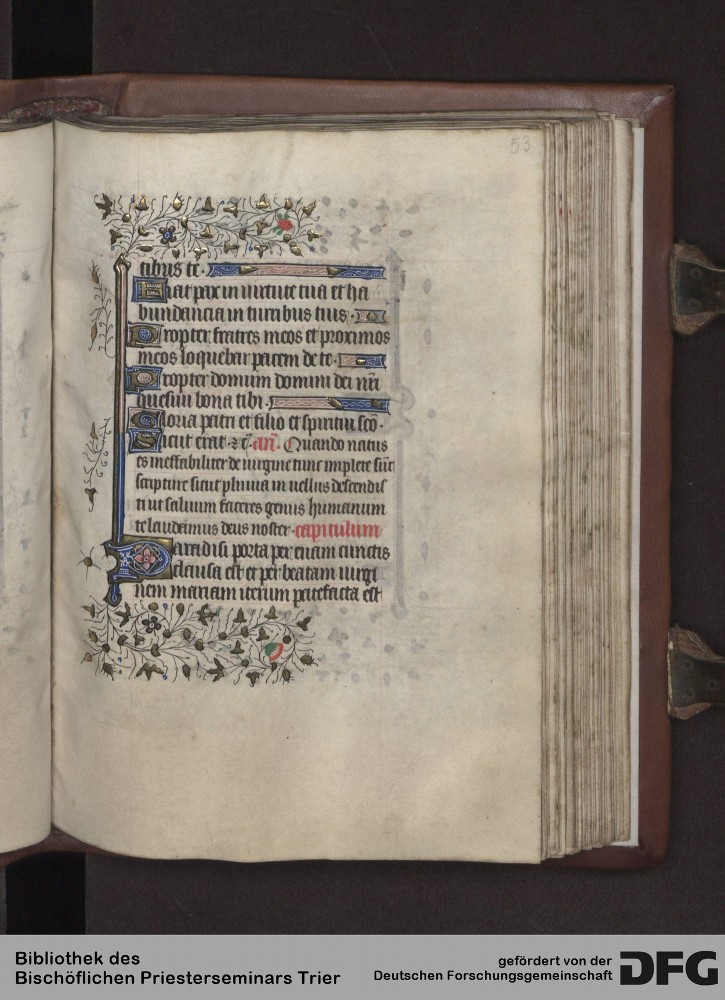 53
tibus te.
Fiat pax in uirtute tua et ha
bundancia in turribus tuis.
Propter fratres meos et proximos
meos loquebar pacem de te.
Propter domum domini dei nr̄i
quesiui bona tibi.
Gloria patri et filio et spiritui sc̄o.
Sicut erat. ⁊c̄. an̄. Quando natus
es ineffabiliter de uirgine tunc implete sūt
scripture sicut pluuia in uellus descendis
ti ut saluum faceres genus humanum
te laudamus deus noster. capitulum
Paradisi porta per euam cunctis
clausa est et per beatam uirgi
nem mariam iterum patefacta est
Bibliothek des
Bischöflichen Priesterseminars Trier
gefördert von der
Deutschen Forschungsgemeinschaft
DFG